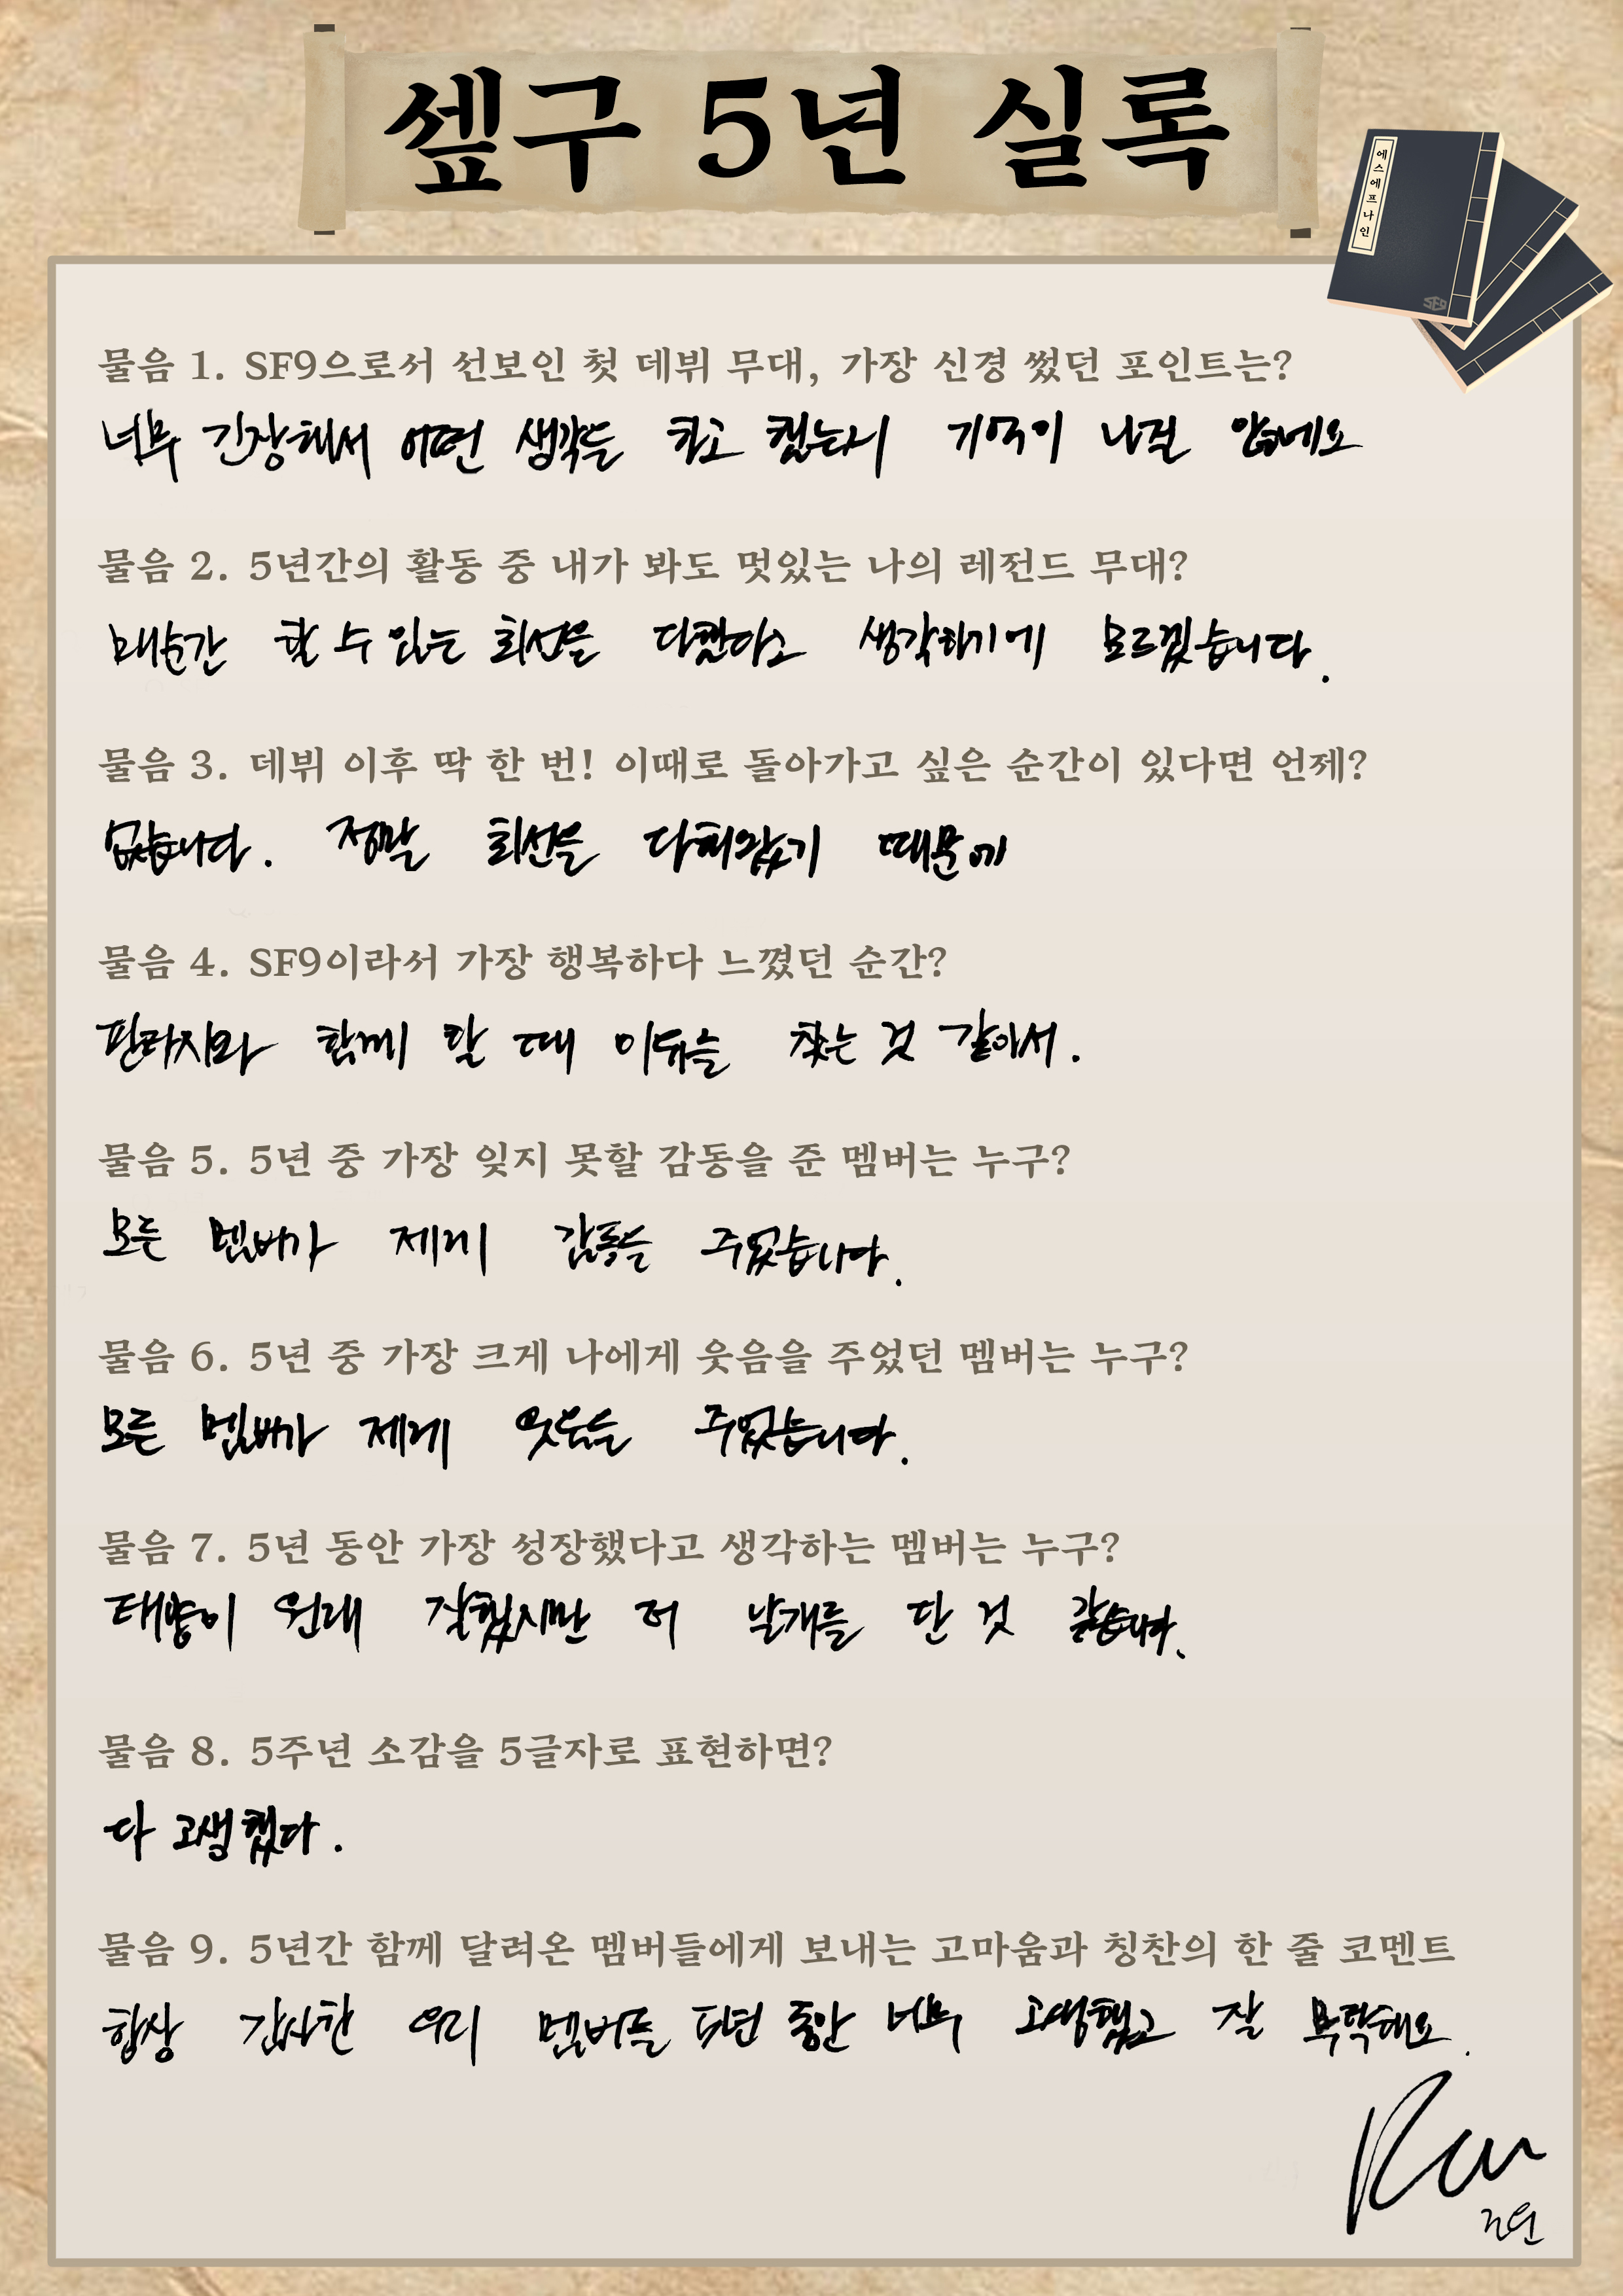 셒구 5년 실록
에스에프나인
SF9
물음 1. SF9으로서 선보인 첫 데뷔 무대, 가장 신경 썼던 포인트는?
너무 긴장해서 어떤 생각을 하고 했는지 기억이 나질 않네요
물음 2. 5년간의 활동 중 내가 봐도 멋있는 나의 레전드 무대?
매순간 할 수 있는 최선을 다했다고 생각하기에 모르겠습니다.
물음 3. 데뷔 이후 딱 한 번! 이때로 돌아가고 싶은 순간이 있다면 언제?
없습니다. 정말 최선을 다해왔기 때문에
물음 4. SF9이라서 가장 행복하다 느꼈던 순간?
판타지와 함께 할 때 이유를 찾는 것 같아서.
물음 5. 5년 중 가장 잊지 못할 감동을 준 멤버는 누구?
모든 멤버가 제게 감동을 주었습니다.
물음 6. 5년 중 가장 크게 나에게 웃음을 주었던 멤버는 누구?
모든 멤버가 제게 웃음을 주었습니다.
물음 7. 5년 동안 가장 성장했다고 생각하는 멤버는 누구?
태양이 원래 잘했지만 더 날개를 단 것 같습니다.
물음 8. 5주년 소감을 5글자로 표현하면?
다 고생했다.
물음 9. 5년간 함께 달려온 멤버들에게 보내는 고마움과 칭찬의 한 줄 코멘트
항상 감사한 우리 멤버들 5년 동안 너무 고생했고 잘 부탁해요.